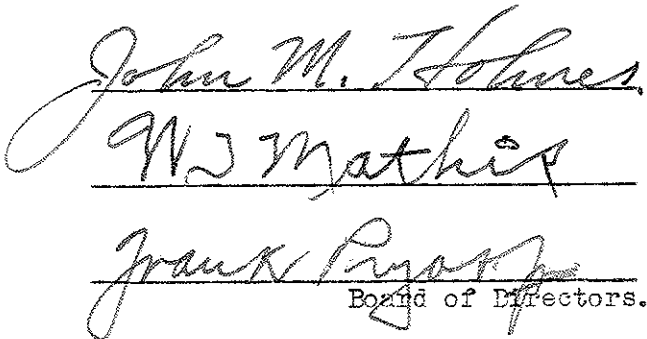 John M. Holmes.
W J Mathis
Frank Pryor Jr
Board of Directors.